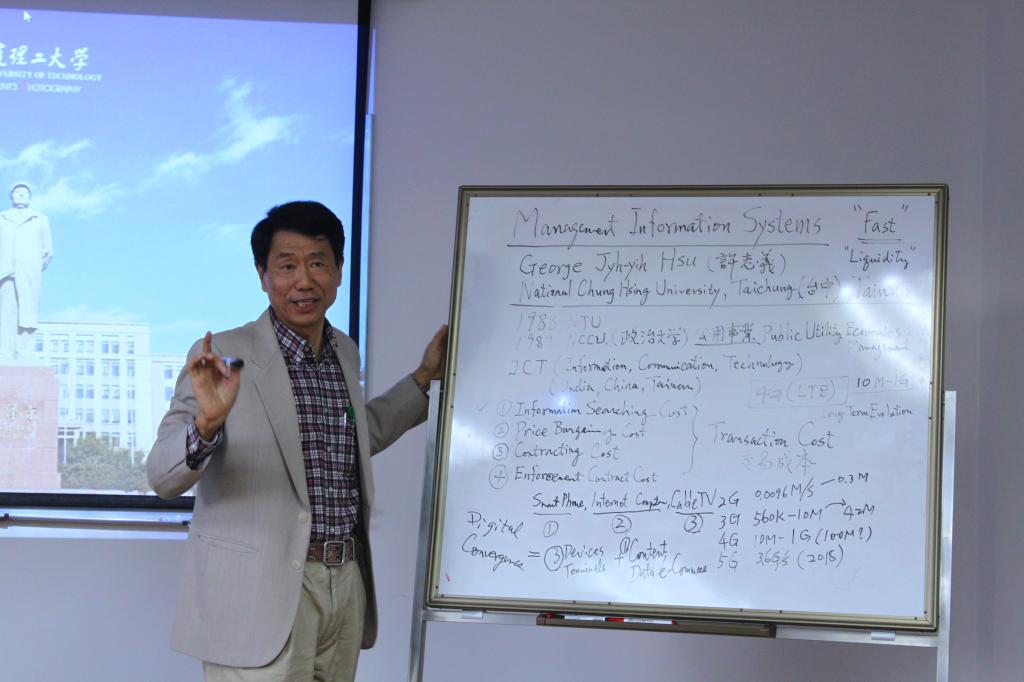 理工大学
VERSITY OF TECHNOLOGY
ENTS PHOTOGRAPHY
Management Information Systems
"Fast"
"Liquidity"
George Jyh-yih Hsu (許志義)
National Chung Hsing University, Taichung (台中) Taiwan
1988 NTU
1989 NCCU (政治大学) 公用事業 Public Utility Economics
Management
ICT (Information, Communication, Technology)
(India, China, Taiwan)
4G (LTE) 10M-1G
Long Term Evolution
① Information Searching Cost
② Price Bargaing Cost
③ Contracting Cost
④ Enforcement Contract Cost
Transaction Cost
交易成本
Smart Phone, Internet Computer, Cable TV
① ② ③
2G 0.0096M/s — 0.3M
3G 560K-10M → 42M
4G 10M-1G (100M?)
5G 3.6G/s (2018)
Digital
Convergence = ③ Devices + ① Content
Terminals Data e-Commerce